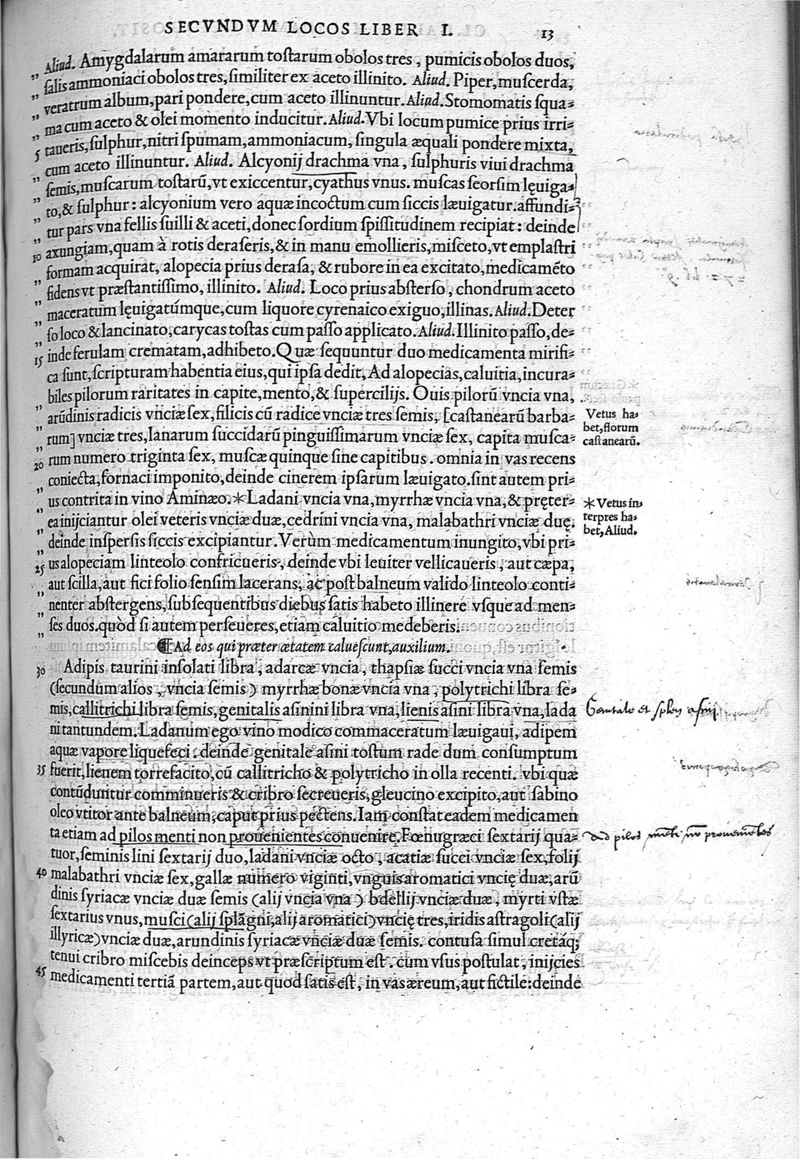 SECVNDVM LOCOS LIBER I. 13
Aliud. Amygdalarum amararum tostarum obolos tres, pumicis obolos duos,
" salis ammoniaci obolos tres, similiter ex aceto illinito. Aliud. Piper, muscerda,
" veratrum album, pari pondere, cum aceto illinuntur. Aliud. Stomomatis squa-
" ma cum aceto & olei momento inducitur. Aliud. Vbi locum pumice prius irri-
5 taueris, sulphur, nitri spumam, ammoniacum, singula æquali pondere mixta,
" cum aceto illinuntur. Aliud. Alcyonij drachma vna, sulphuris viui drachma
" semis, muscarum tostarū, vt exiccentur, cyathus vnus. muscas seorsim lęuiga-
" to, & sulphur: alcyonium vero aquæ incoctum cum siccis læuigatur. affundi-
" tur pars vna fellis suilli & aceti, donec sordium spissitudinem recipiat: deinde
10 axungiam, quam à rotis deraseris, & in manu emollieris, misceto, vt emplastri
" formam acquirat, alopecia prius derasa, & rubore in ea excitato, medicamēto
" fidens vt præstantissimo, illinito. Aliud. Loco prius absterso, chondrum aceto
" maceratum lęuigatúmque, cum liquore cyrenaico exiguo, illinas. Aliud. Deter
" so loco & lancinato, carycas tostas cum passo applicato. Aliud. Illinito passo, de-
15 inde ferulam crematam, adhibeto. Quæ sequuntur duo medicamenta mirifi-
ca sunt, scripturam habentia eius, qui ipsa dedit, Ad alopecias, caluitia, incura-
biles pilorum raritates in capite, mento, & supercilijs. Ouis pilorū vncia vna,
" arūdinis radicis vnciæ sex, filicis cū radice vnciæ tres semis, [castanearū barba-
" rum] vnciæ tres, lanarum succidarū pinguissimarum vnciæ sex, capita musca-
20 rum numero triginta sex, muscæ quinque sine capitibus. omnia in vas recens
" coniecta, fornaci imponito, deinde cinerem ipsarum læuigato. sint autem pri-
" us contrita in vino Aminæo. * Ladani vncia vna, myrrhæ vncia vna, & pręter-
" ea inijciantur olei veteris vnciæ duæ, cedrini vncia vna, malabathri vnciæ duę.
" deinde inspersis siccis excipiantur. Verùm medicamentum inungito, vbi pri-
25 us alopeciam linteolo confricueris, deinde vbi leuiter vellicaueris, aut cæpa,
" aut scilla, aut fici folio sensim lacerans, ac post balneum valido linteolo conti-
" nenter abstergens, subsequentibus diebus satis habeto illinere vsque ad men-
" ses duos. quòd si autem perseueres, etiam caluitio medeberis.
¶ Ad eos qui præter ætatem caluescunt, auxilium.
30 Adipis taurini insolati libra, adarcæ vncia, thapsiæ succi vncia vna semis
(secundum alios, vncia semis) myrrhæ bonæ vncia vna, polytrichi libra se-
mis, callitrichi libra semis, genitalis asinini libra vna, lienis asini libra vna, lada
ni tantundem. Ladanum ego vino modico commaceratum læuigaui, adipem
aquæ vapore liquefeci: deinde genitale asini tostum rade dum consumptum
35 fuerit, lienem torrefacito, cū callitricho & polytricho in olla recenti. vbi quæ
contūduntur comminueris & cribro secreueris, gleucino excipito, aut sabino
oleo vtitor ante balneum, caput prius pectens. Iam constat eadem medicamen
ta etiam ad pilos menti non prouenientes conuenire. Fœnugræci sextarij qua-
tuor, seminis lini sextarij duo, ladani vnciæ octo, acatiæ succi vnciæ sex, folij
40 malabathri vnciæ sex, gallæ numero viginti, vnguis aromatici vncię duæ, arū
dinis syriacæ vnciæ duæ semis (alij vncia vna) bdellij vnciæ duæ, myrti vstæ
sextarius vnus, musci (alij splāgni, alij aromatici) vncię tres, iridis astragoli (alij
illyricæ) vnciæ duæ, arundinis syriacæ vnciæ duæ semis. contusa simul cretáq;
tenui cribro miscebis deinceps vt præscriptum est. cum vsus postulat, inijcies
45 medicamenti tertiā partem, aut quod satis est, in vas æreum, aut fictile: deinde
Vetus ha-
bet, florum
castanearū.
* Vetus in-
terpres ha-
bet, Aliud.
Genitale et splen asini
Ad pilos menti non provenientes